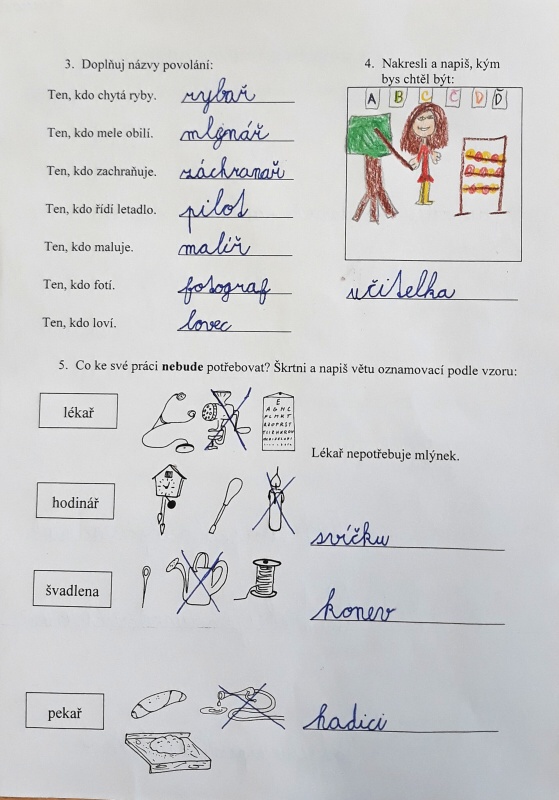 3. Doplňuj názvy povolání:
Ten, kdo chytá ryby. rybař
Ten, kdo mele obilí. mlynář
Ten, kdo zachraňuje. záchranař
Ten, kdo řídí letadlo. pilot
Ten, kdo maluje. malíř
Ten, kdo fotí. fotograf
Ten, kdo loví. lovec
4. Nakresli a napiš, kým
bys chtěl být:
A B C Č D Ď
učitelka
5. Co ke své práci nebude potřebovat? Škrtni a napiš větu oznamovací podle vzoru:
lékař
E
Lékař nepotřebuje mlýnek.
hodinář
svíčku
švadlena
konev
pekař
hadici